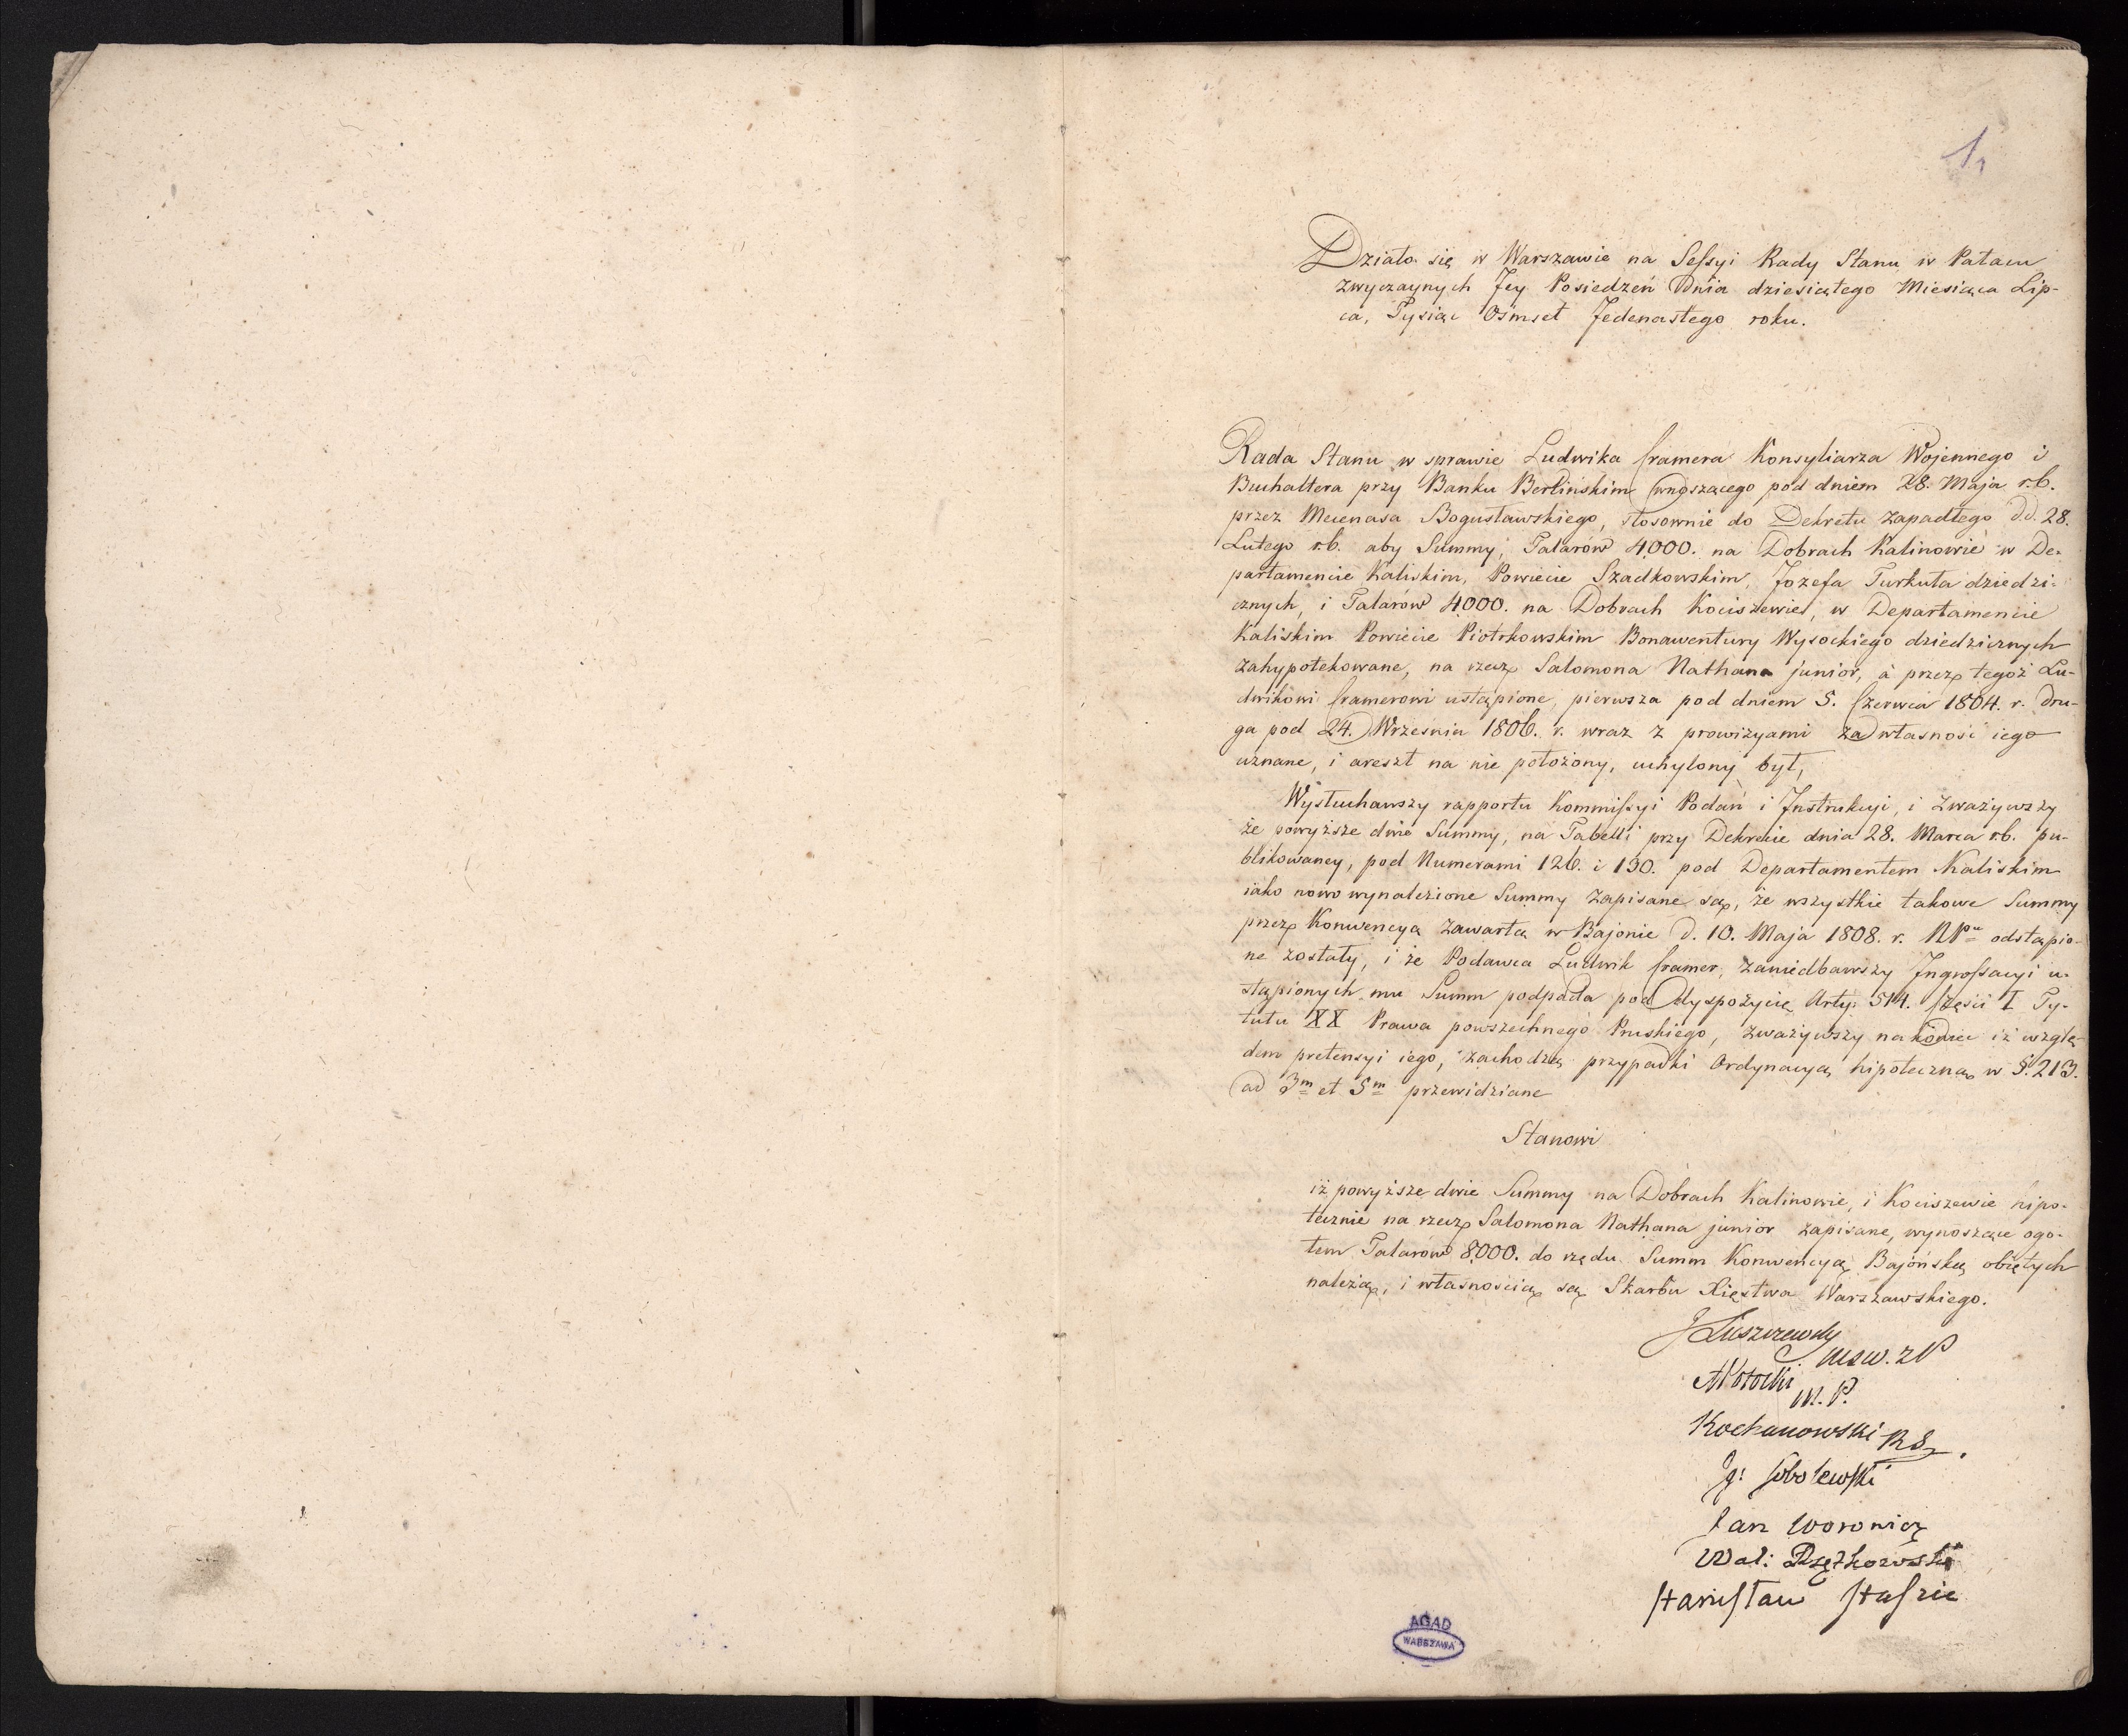 1.
Działo się w Warszawie na Sessyi Rady Stanu w Pałacu
zwyczaynych Jey Posiedzeń Dnia dziesiątego Miesiąca Lip-
ca, Tysiąc Ośmset Jedenastego roku.
Rada Stanu w sprawie Ludwika Cramera Konsyliarza Wojennego i
Buchaltera przy Banku Berlińskim wnoszącego pod dniem 28. Maja r.b.
przez Mecenasa Bogusławskiego, stosownie do Dekretu zapadłego d.d. 28.
Lutego r.b. aby Summy, Talarów 4000. na Dobrach Kalinowie w De-
partamencie Kaliskim, Powiecie Szadkowskim, Jozefa Turkuła dziedzi-
cznych, i Talarów 4000. na Dobrach Kociszewie, w Departamencie
Kaliskim Powiecie Piotrkowskim Bonawentury Wysockiego dziedzicznych
zahypotekowane, na rzecz Salomona Nathana junior, a przez tegoż Lu-
dwikowi Cramerowi ustąpione, pierwsza pod dniem 5. Czerwca 1804. r. Dru-
ga pod 24. Września 1806. r. wraz z prowizyami za własność iego
uznane, i areszt na nie położony, uchylony był,
Wysłuchawszy rapportu Kommissyi Podań i Instrukcyi, i zważywszy
że powyższe dwie Summy, na Tabelli przy Dekrecie dnia 28. Marca r.b. pu-
blikowaney, pod Numerami 126. i 130. pod Departamentem Kaliskim
iako nowo wynalezione Summy zapisane są, że wszystkie takowe Summy
przez Konwencyą zawartą w Bajonie d. 10. Maja 1808. r. NPu odstąpio-
ne zostały, i że Podawca Ludwik Cramer, zaniedbawszy Ingrossacyi u-
stąpionych mu Summ podpada pod dyspozycię Arty: 514. Części I Ty-
tułu XX Prawa powszechnego Pruskiego, zważywszy nakoniec iż wzglę-
dem pretensyi iego, zachodzą przypadki Ordynacyą hipoteczną w §. 213.
ad 3m et 5m przewidziane
Stanowi
iż powyższe dwie Summy na Dobrach Kalinowie, i Kociszewie hipo-
tecznie na rzecz Salomona Nathana junior zapisane, wynoszące ogo-
łem Talarów 8000. do rzędu Summ Konwencyą Bajońską obiętych
należą, i własnością są Skarbu Xięstwa Warszawskiego.
J Łuszczewsky
MSW. z P
APotocki
M. P.
Kochanowski RS.
Ig: Sobolewski
Jan Woronicz
Wal: Rzętkowski
Stanisław Staszic
AGAD
WARSZAWA